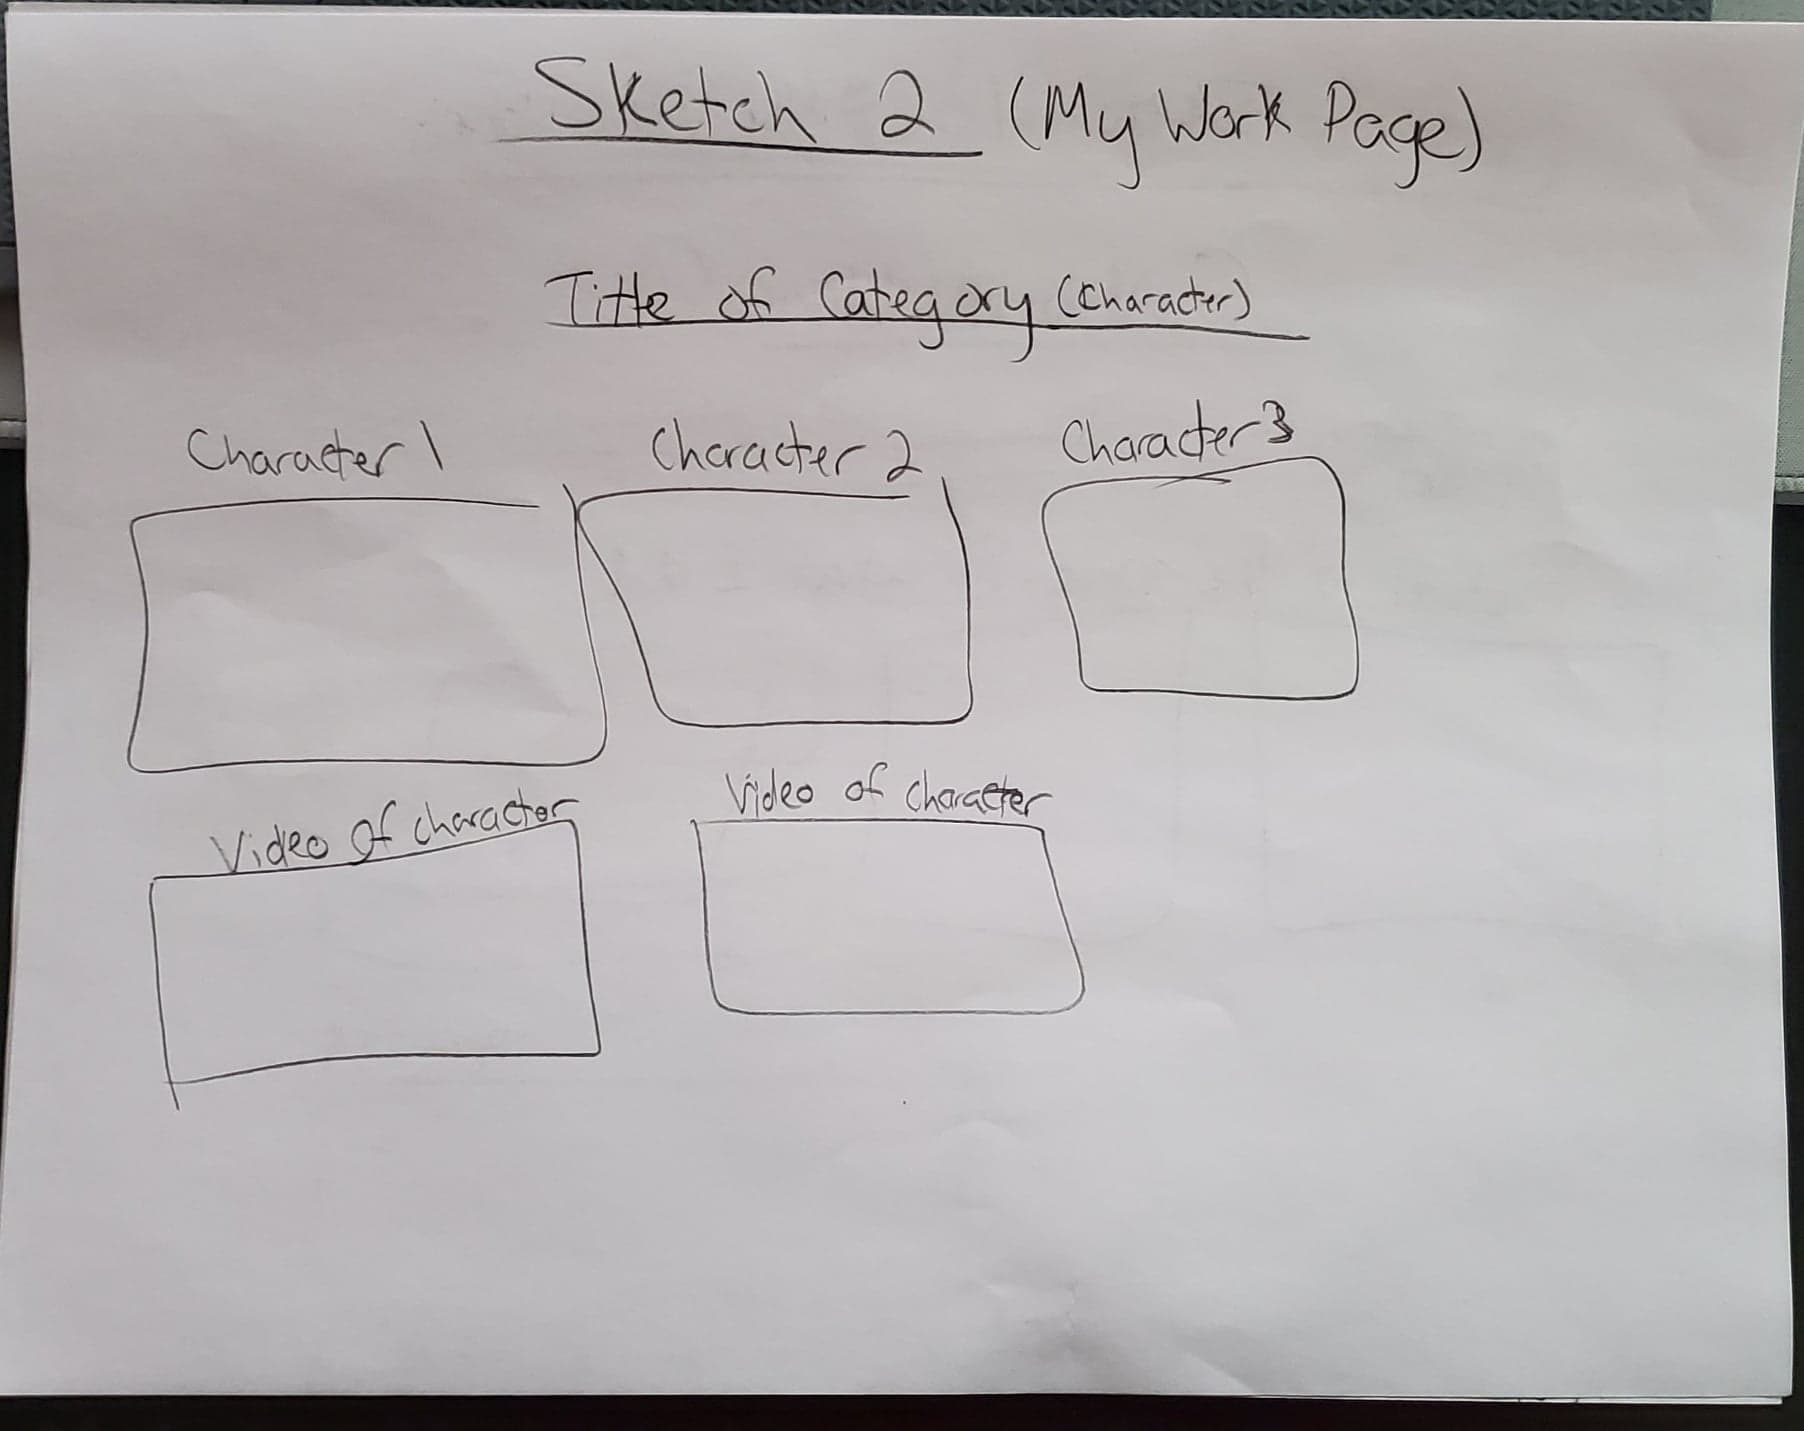 Sketch 2 (My Work Page)
Title of Category (Character)
Character 1 Character 2 Character 3
Video of character Video of character